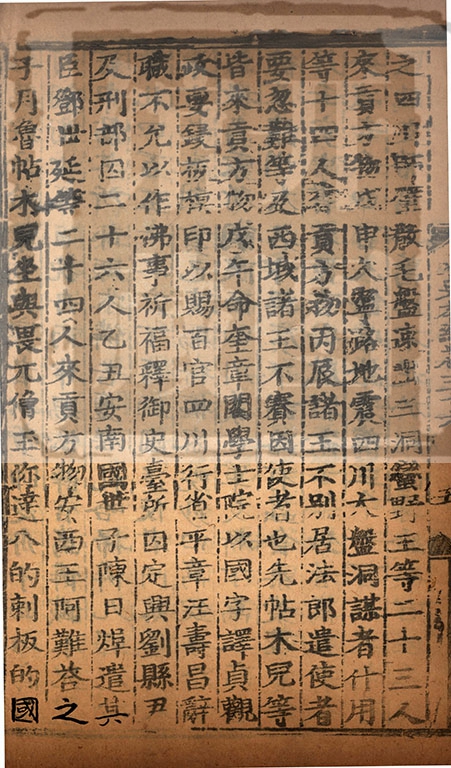 之四川師壁散毛盤速出三洞蠻野王等二十三人
來貢方物戊申大寧路地震四川大盤洞謀者什用
等十四人來貢方物丙辰諸王不別居法郎遣使者
要忽難等及西域諸王不賽因使者也先帖木兒等
皆來貢方物戊午命奎章閣學士院以國字譯貞觀
政要鋟板模印以賜百官四川行省平章汪壽昌辭
職不允以作佛事祈福釋御史臺所囚定興劉縣尹
及刑部囚二十六人乙丑安南國世子陳日焞遣其
臣鄧世延等二十四人來貢方物安西王阿難荅之
子月魯帖木兒坐與畏兀僧玉你達八的剌板的國